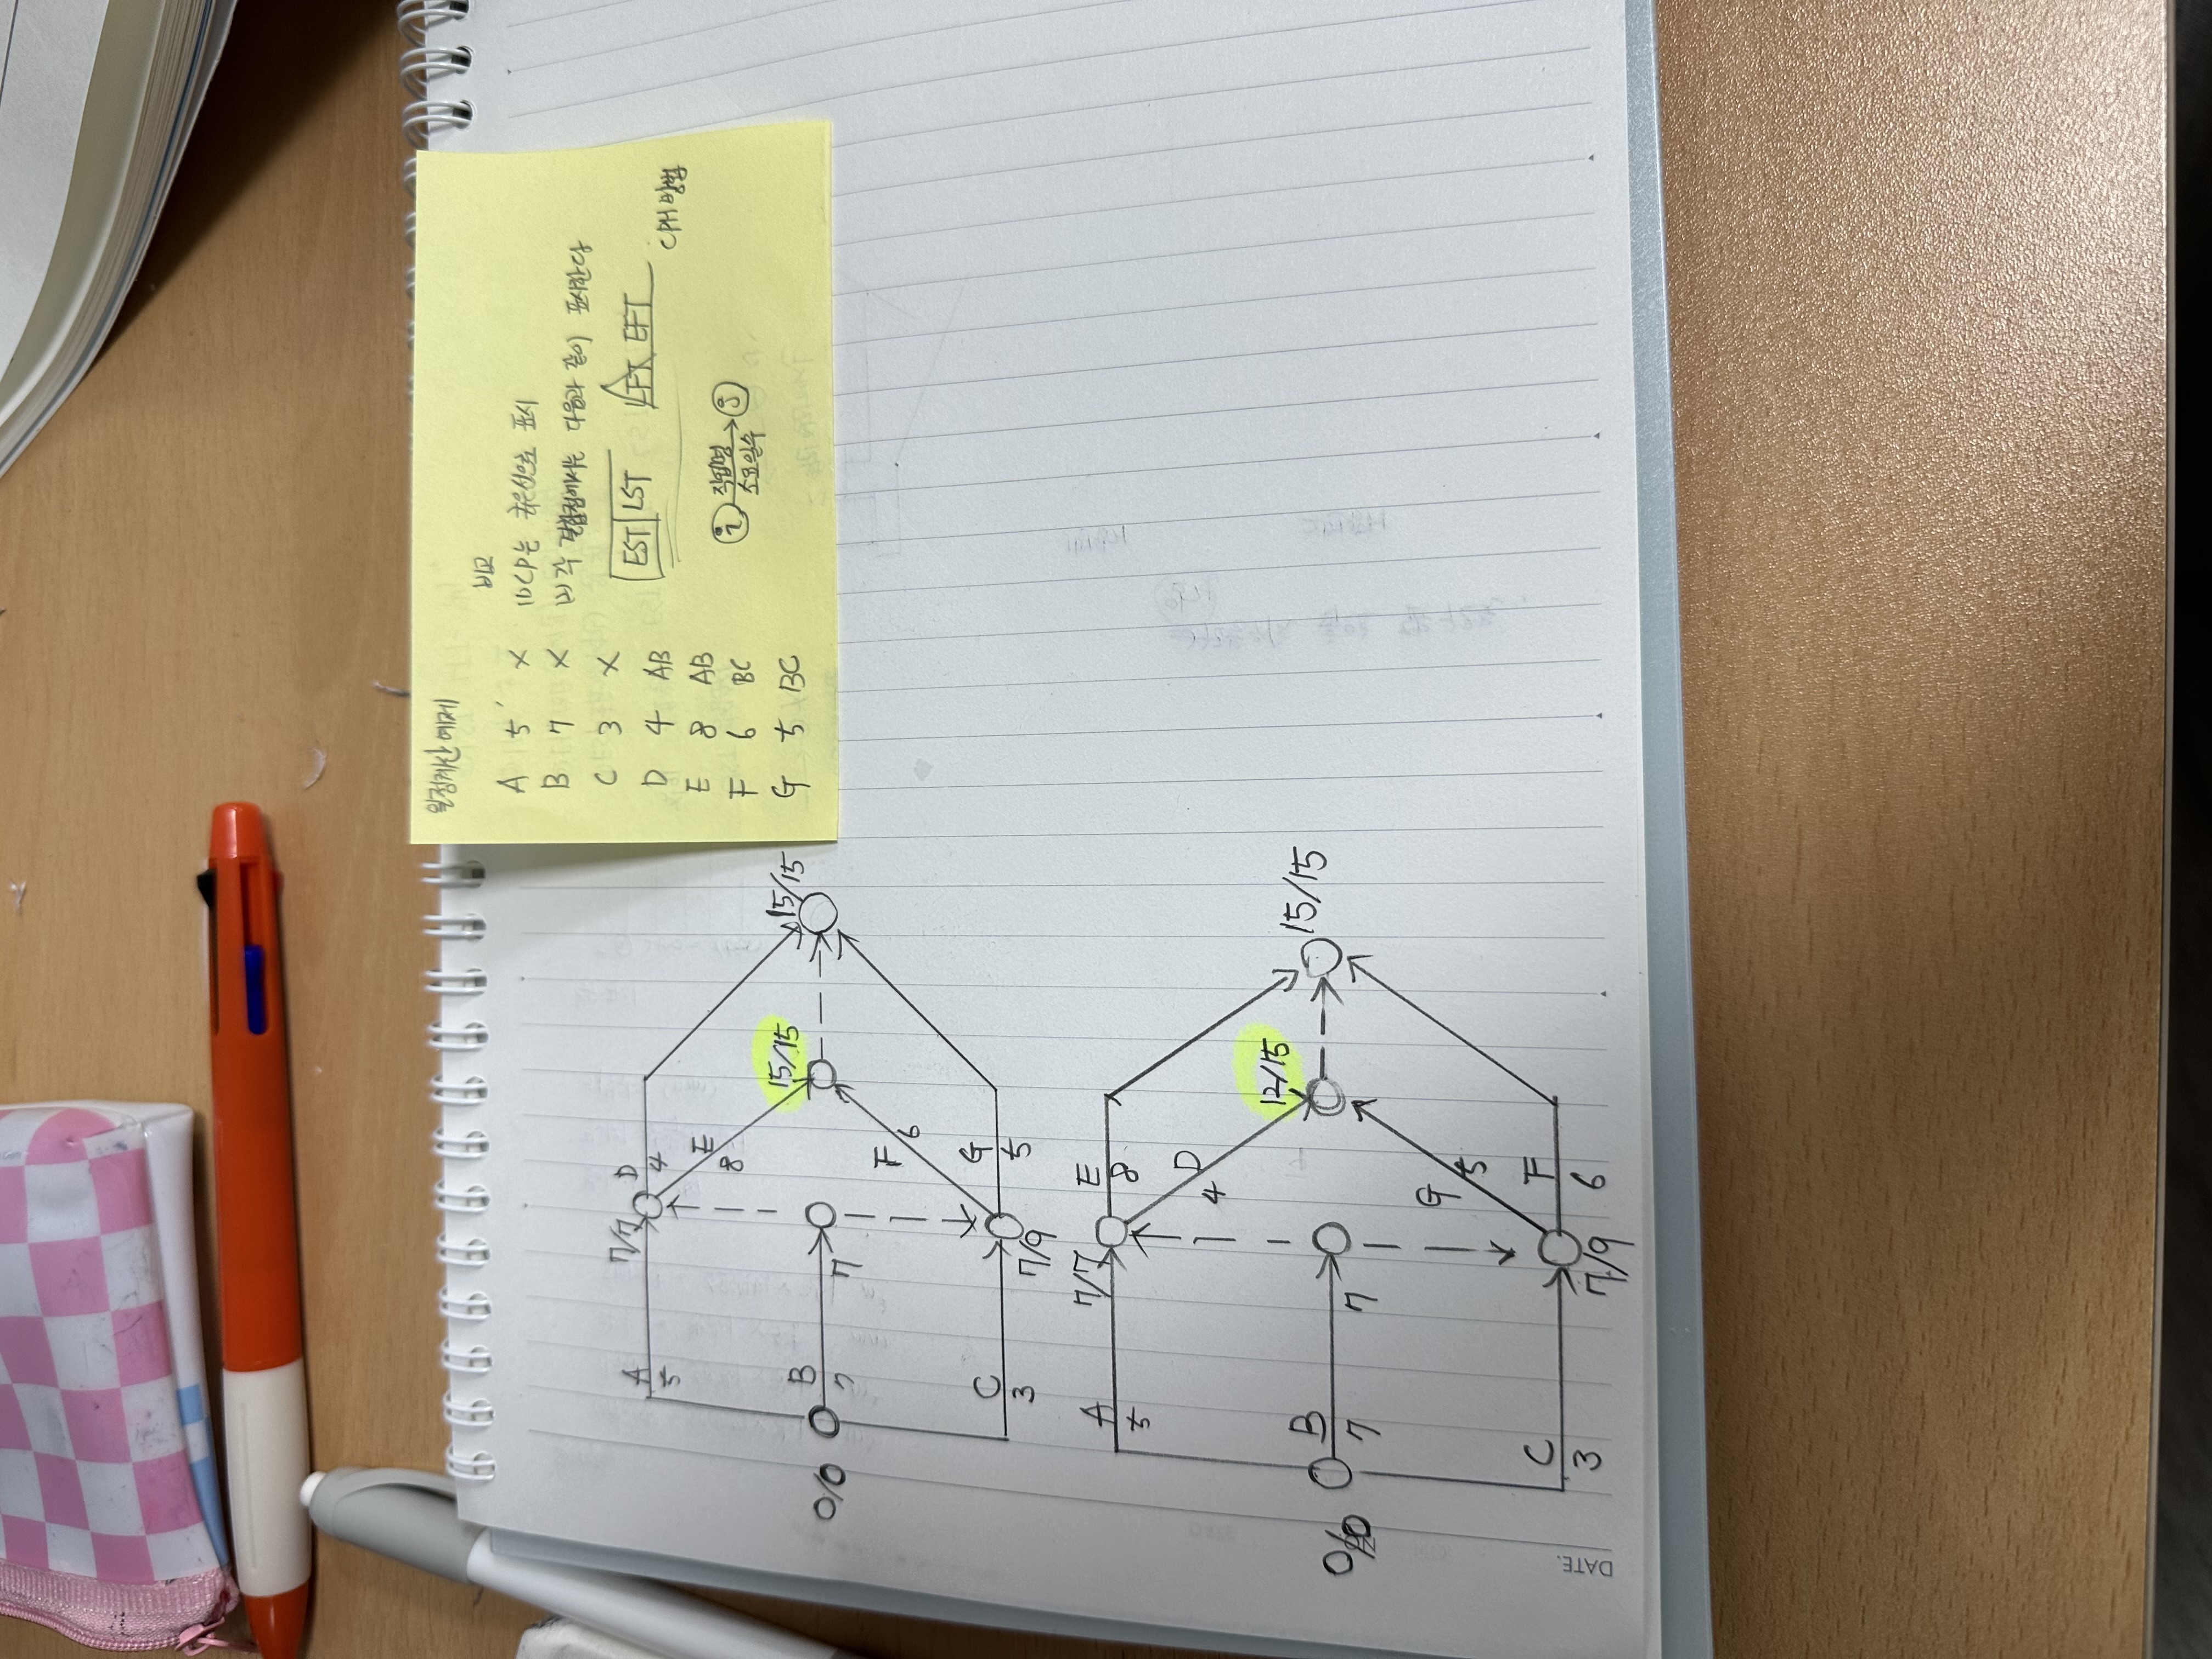 일정계산 예제
비고
A 5 X (1) CP는 굵은선으로 표시
B 7 X (2) 각 결합점에서는 다음과 같이 표시한다
C 3 X EST LST LFT EFT
D 4 AB CPM 방법
E 8 AB
F 6 BC ⓘ 작업명 ⓙ
G 5 BC 소요일수
7/7 D
A E 4
5 8
15/15
15/15
0/0 B 7
7
F 6
C G
3 7/9 5
7/7 E
A 8
5 D
4
12/15
15/15
B
0/0 7 7
G 5
C F
3 7/9 6
DATE.